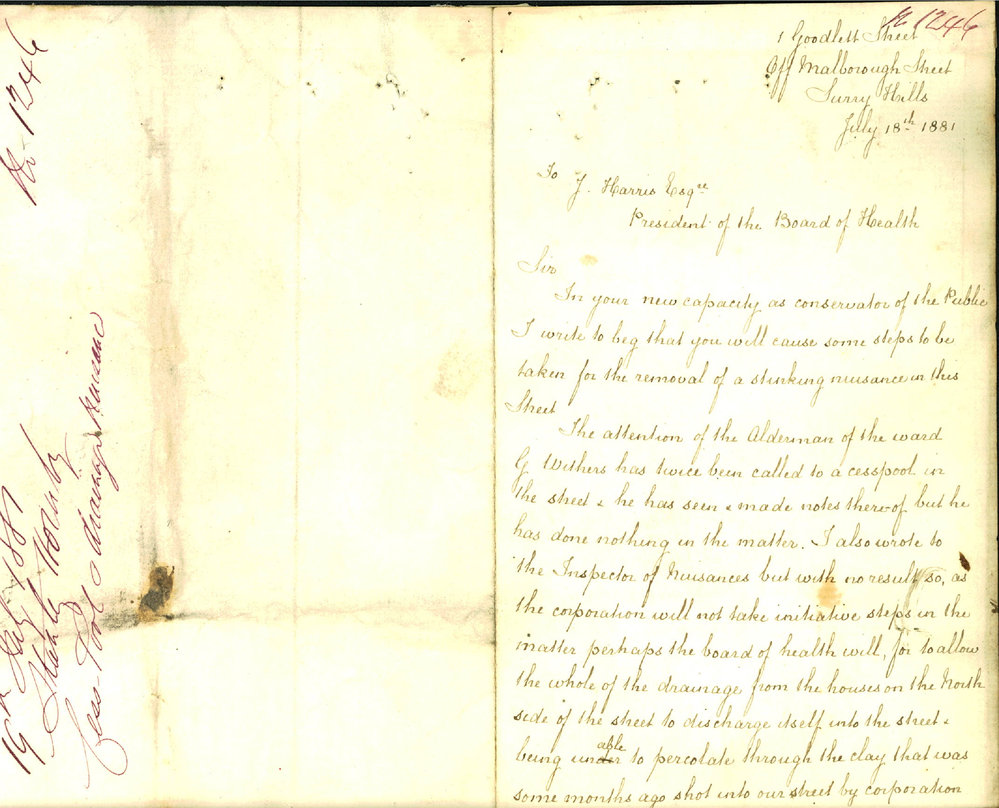 No 1246
19th July 1881
Stanley Hornby
Cess-Pool & drainage Nuisance
No 1246
1 Goodlett Street
Off Malborough Street
Surry Hills
July 18th 1881
To
J. Harris Esqre
President of the Board of Health
Sir
In your new capacity as conservator of the Public
I write to beg that you will cause some steps to be
taken for the removal of a stinking nuisance in this
Street
The attention of the Alderman of the ward
G Withers has twice been called to a cesspool in
the street & he has seen & made notes there-of but he
has done nothing in the matter. I also wrote to
the Inspector of Nuisances but with no result, so, as
the corporation will not take initiative steps in the
matter perhaps the board of health will, for to allow
the whole of the drainage from the houses on the North
side of the street to discharge itself into the street &
being unable to percolate through the clay that was
some months ago shot into our street by corporation